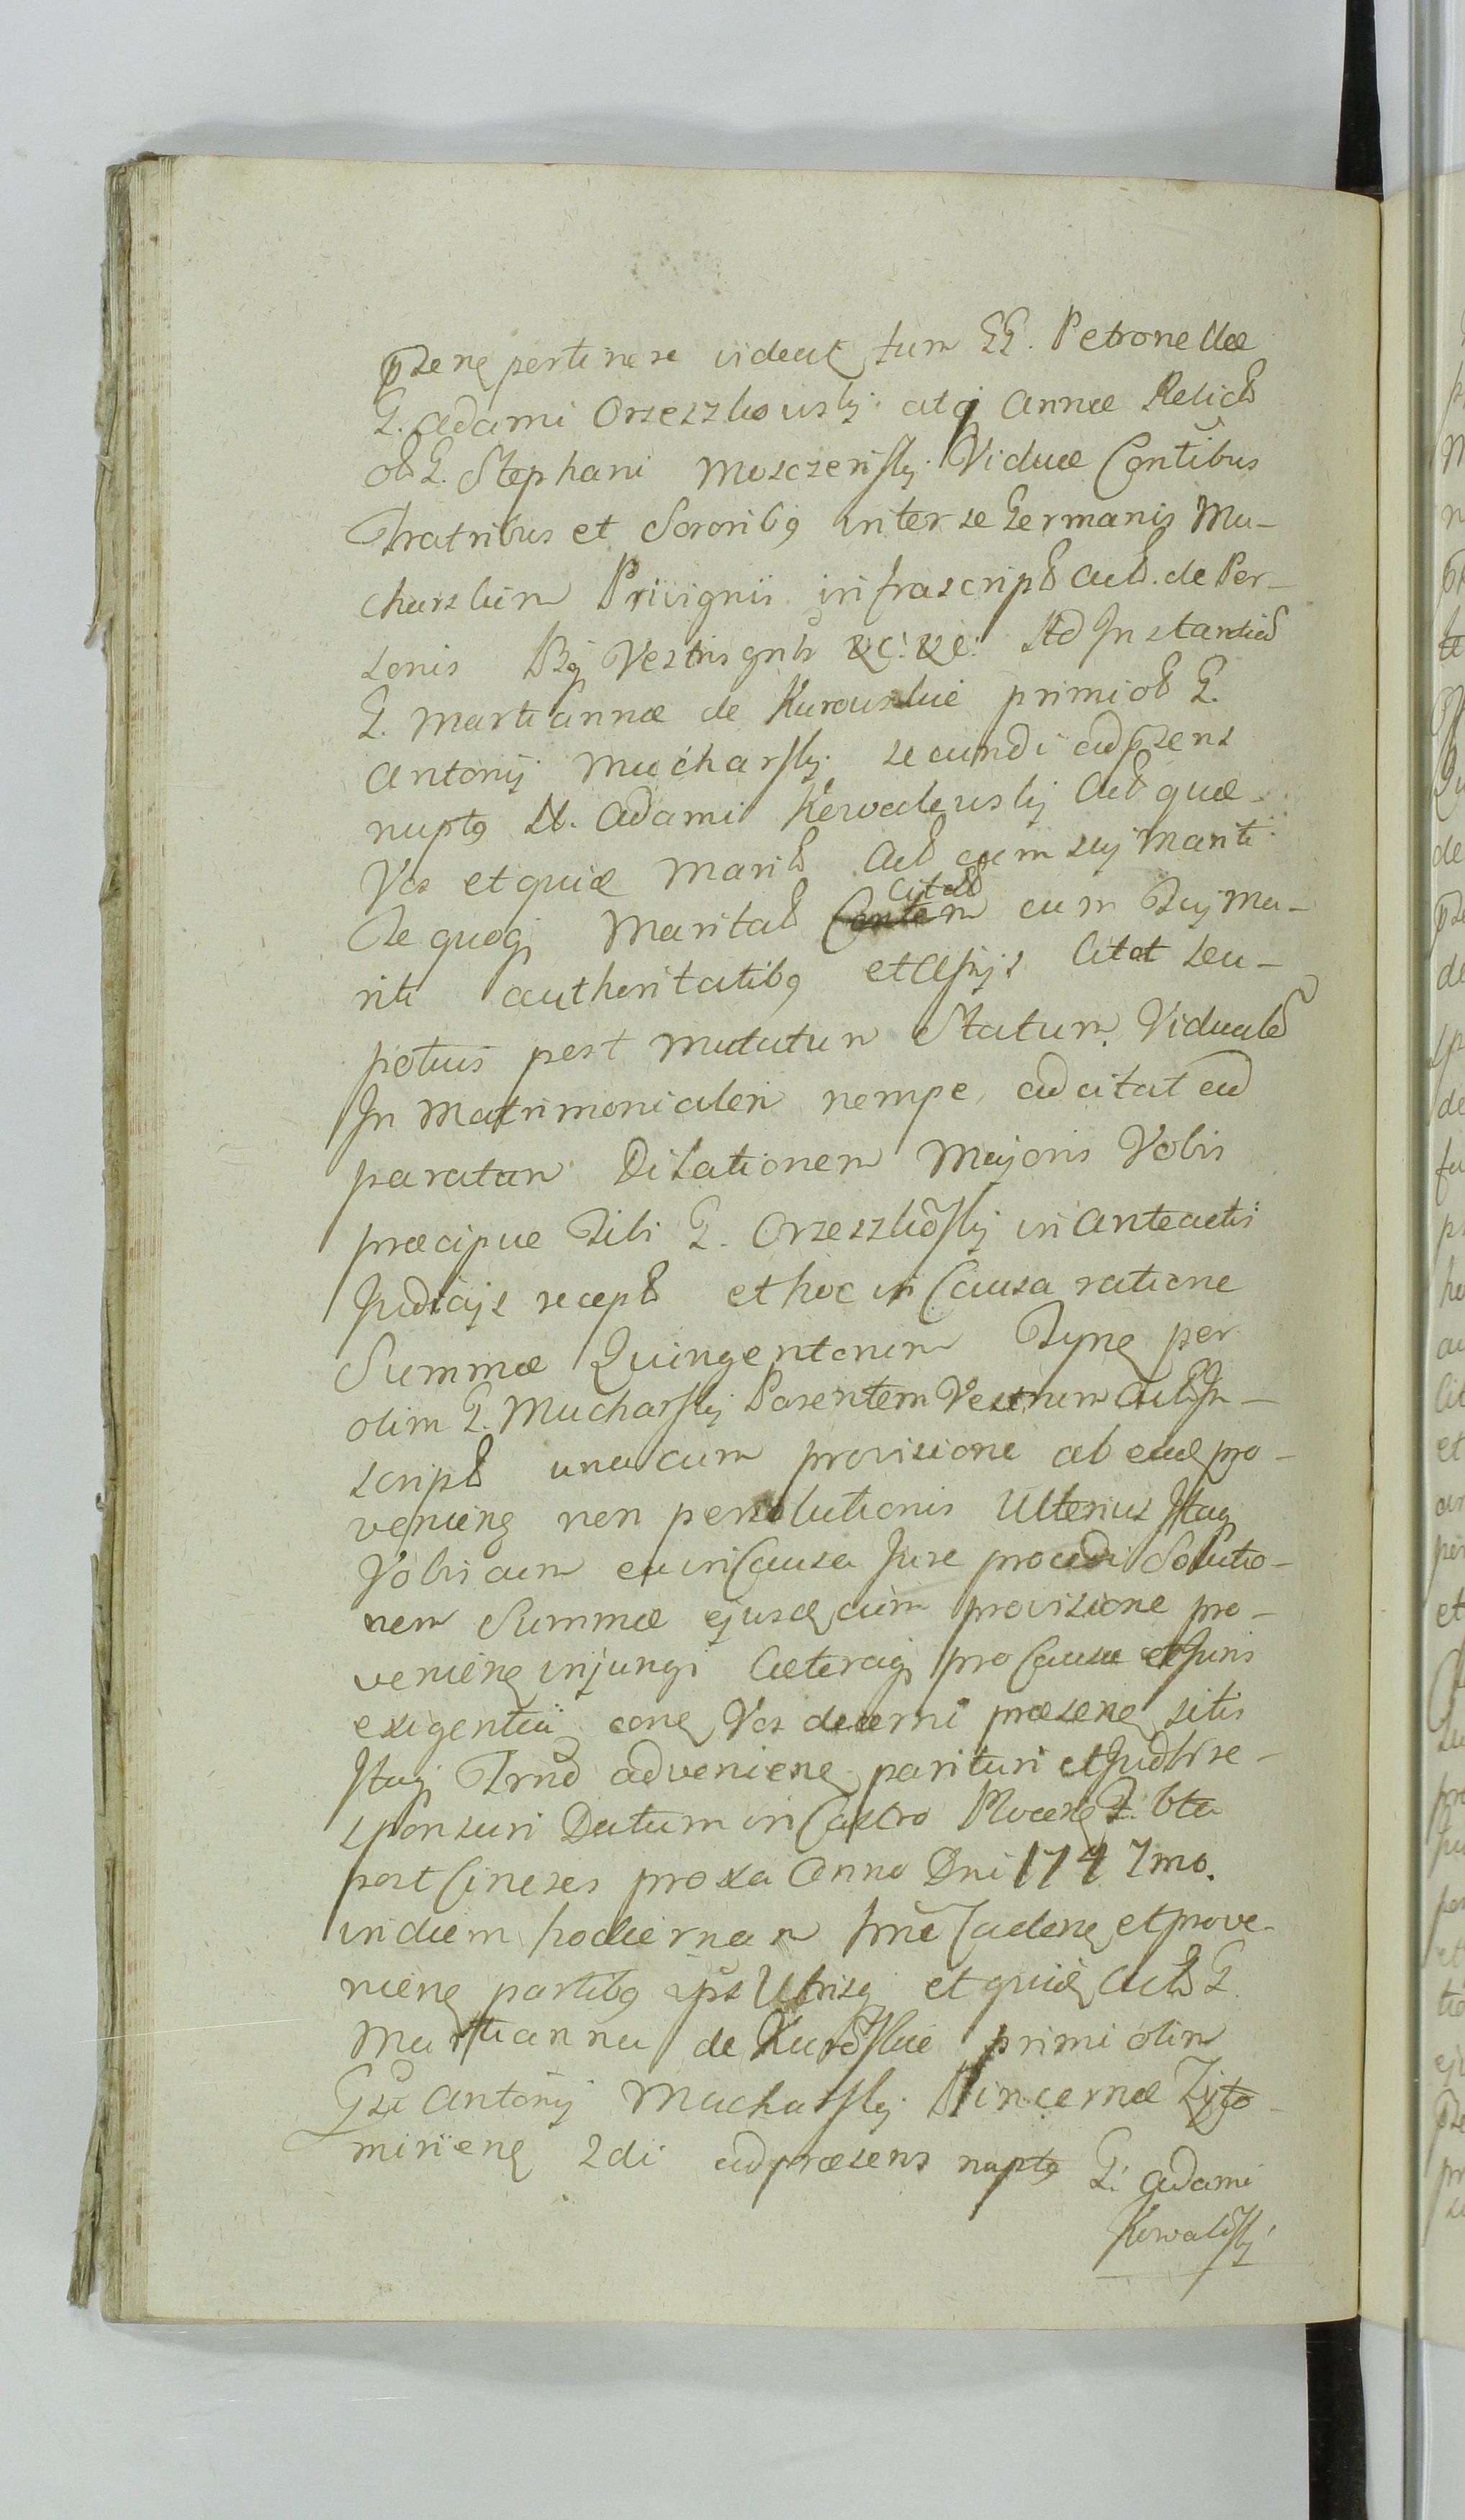 psene pertinere videat tum GG. Petronellae
G. Adami Orzeszkowsky atq Annae Relict
ol G. Stephani Moszczensky Viduae Contibus
Fratribus et Sororibq inter se Germanis Mu-
charskim Privignis infrascript Act. de Per-
sonis Bq Vestris gnlr &c: &c: Ad Instantia
G. Martiannae de Kurowskie primi ol G.
Antonij Mucharsky secundi ad psens
nuptq N. Adami Kowalewsky Act quae
Vos et quia Marit Act cum suj Mariti
Te quoq Maritat citat cum Tuj ma-
riti authoritatibq et Assijs Citat seu-
potius post mutatum Statum Vidual
In Matrimonialem nempe, adcitat ad
paratam Dilationem Majoris Vobis
praecipue Tibi G. Orzeszkosky in Anteactis
Judicijs recept et hoc in Causa ratione
Summae Quingentorum Tyne per
olim G. Mucharsky Parentem Vestrum Act In-
script una cum provisione ab eade pro-
veniene non persolutionis Ulterius Itaq
Vobiscum ea in Causa Jure procedi Solutio-
nem Summae ejusde cum provisione pro-
veniene injungi Caeteraq pro Causae et Juris
exigentia cone Vos decerni praesene sitis
Itaq Trno adveniene parituri et Judtr re-
sponsuri Datum in Castro Plocen F. bta
post Cineres proxa Anno Dni 1747mo.
in diem hodiernam hnc Cadene et prove-
niene partibq ips Utrisq et quide Act G.
Martianna de Kuroskie primi olim
Gsi Antonij Mucharsky Pincernae Zyto-
miriene 2di ad praesens nuptq G. Adami
Kowalsky